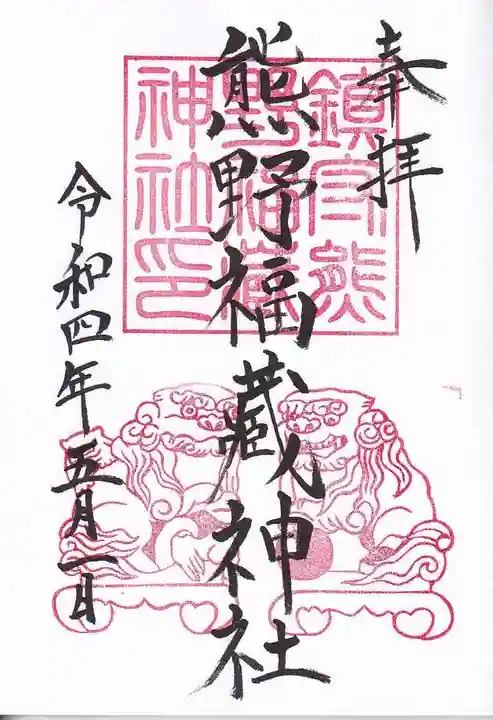 奉拝
熊野福蔵神社
令和四年五月一日
鎮守熊
野福蔵
神社印